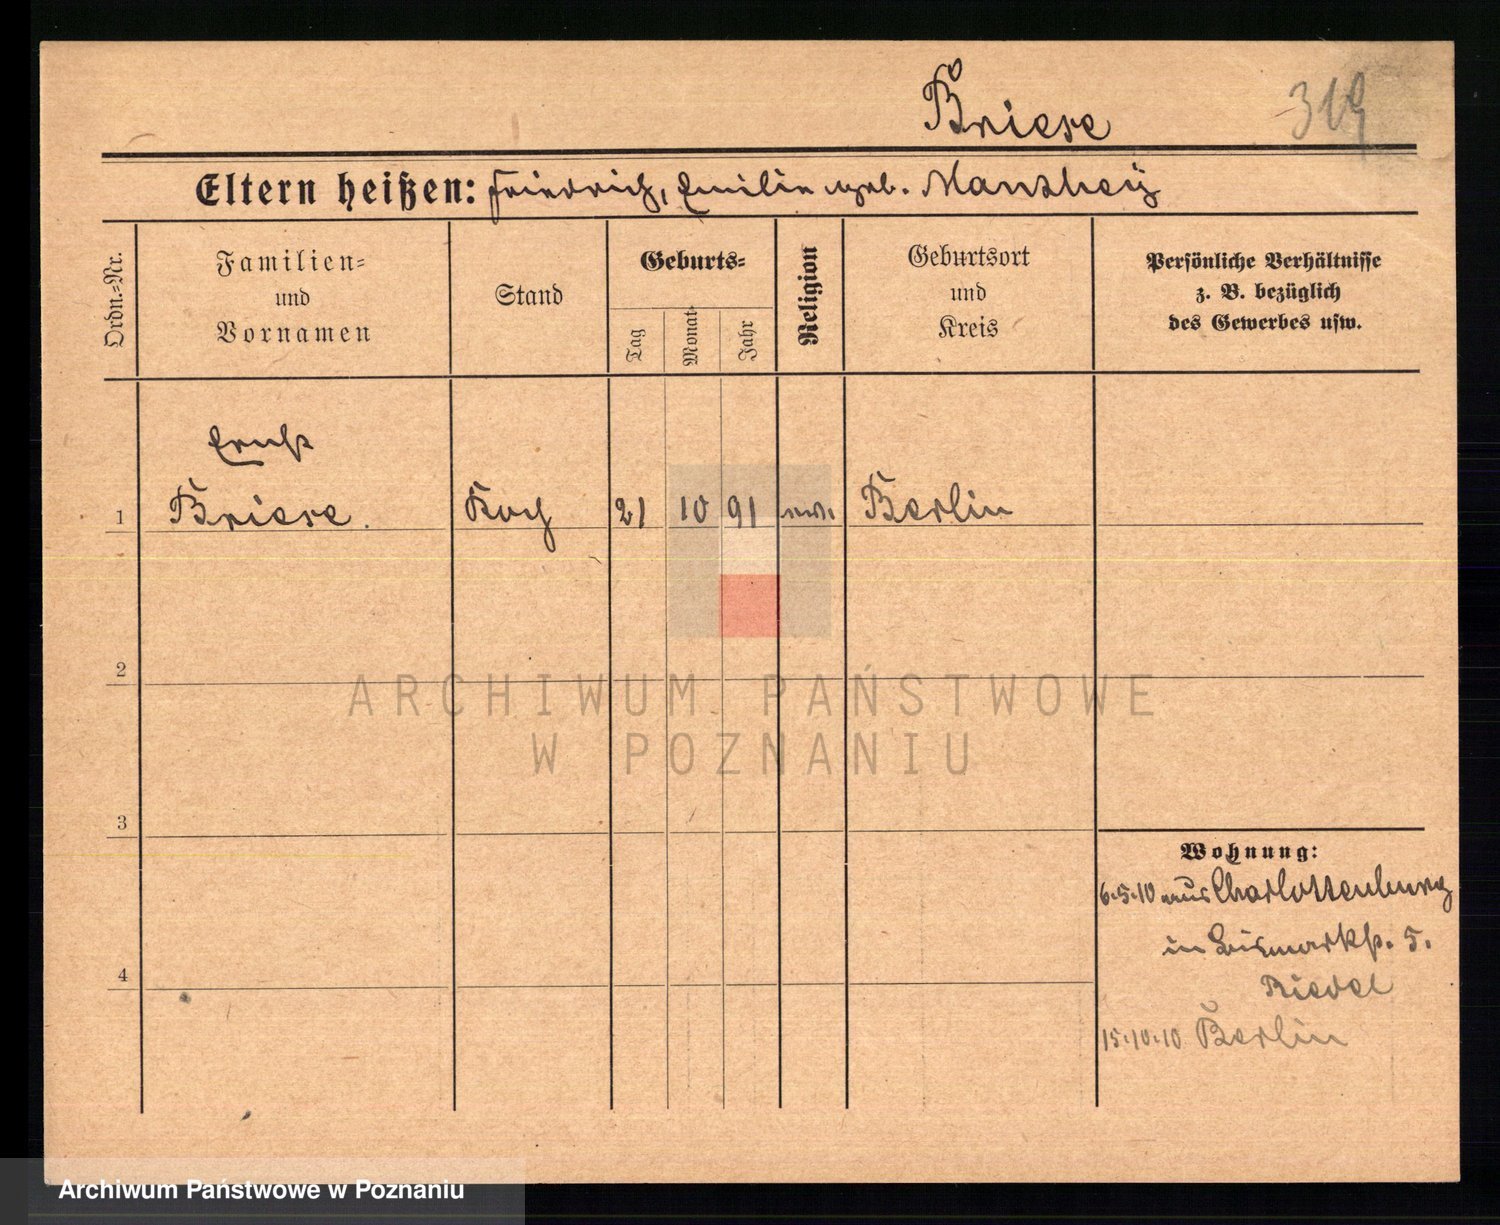 Briese 319
Eltern heißen: Friedrich, Emilie geb. Manthey
Ordn.-Nr.
Familien-
und
Vornamen
Stand
Geburts-
Tag
Monat
Jahr
Religion
Geburtsort
und
Kreis
Persönliche Verhältnisse
z. B. bezüglich
des Gewerbes usw.
Ernst
1 Briese. Koch 21 10 91 ev. Berlin
2
3
4
Wohnung:
6.5.10 aus Charlottenburg
in Bismarckst. 5.
Riedel
15.10.10 Berlin
ARCHIWUM PAŃSTWOWE
W POZNANIU
Archiwum Państwowe w Poznaniu